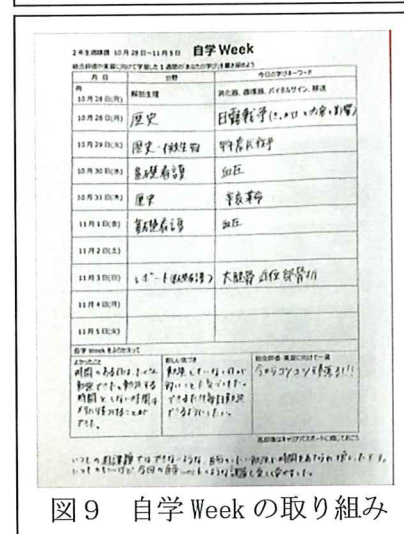 2年生週課題 10月28日～11月5日 自学Week
総合評価や実習に向けて学習した1週間の「あなたの学び」を書き留めよう
月 日 分野 今日の学びキーワード
例
10月28日(月) 解剖生理 消化器、循環器、バイタルサイン、移送
10月28日(月) 歴史 日露戦争(きっかけと内容と影響)
10月29日(火) 歴史・微生物
10月30日(水) 基礎看護 血圧
10月31日(木) 歴史 辛亥革命
11月1日(金) 基礎看護 血圧
11月2日(土)
11月3日(日) レポート(基礎看護) 大腿骨近位部骨折
11月4日(月)
11月5日(火)
自学Weekをふりかえって
よかったこと
時間のある日は、たくさん
勉強できた。勉強する
時間としない時間の
メリハリをつけることが
できた。
新しい気づき
勉強していない日が
多いことに気づけた。
できるだけ毎日勉強
できるようにしたい。
総合評価・実習に向けて一言
今からコツコツ頑張る!!
返却後はキャリアパスポートに残しておこう
図9 自学Weekの取り組み